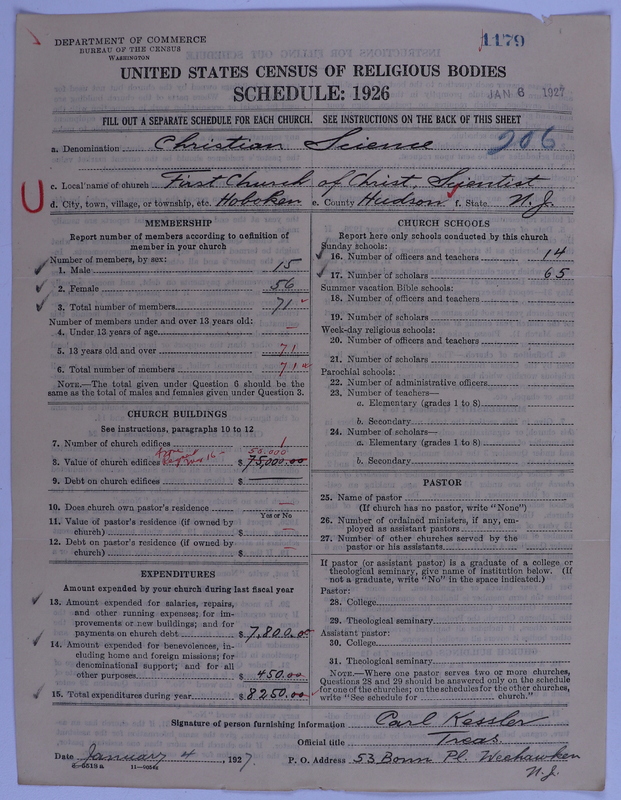 DEPARTMENT OF COMMERCE
BUREAU OF THE CENSUS
WASHINGTON
1179
UNITED STATES CENSUS OF RELIGIOUS BODIES
SCHEDULE: 1926
JAN 6 1927
FILL OUT A SEPARATE SCHEDULE FOR EACH CHURCH. SEE INSTRUCTIONS ON THE BACK OF THIS SHEET
a. Denomination Christian Science 206
c. Local name of church First Church of Christ, Scientist
d. City, town, village, or township, etc. Hoboken e. County Hudson f. State N.J.
MEMBERSHIP
Report number of members according to definition of
member in your church
Number of members, by sex:
1. Male 15
2. Female 56
3. Total number of members 71
Number of members under and over 13 years old:
4. Under 13 years of age —
5. 13 years old and over 71
6. Total number of members 71
NOTE.—The total given under Question 6 should be the
same as the total of males and females given under Question 3.
CHURCH BUILDINGS
See instructions, paragraphs 10 to 12
7. Number of church edifices 1
50,000
8. Value of church edifices $ 75,000.00
9. Debt on church edifices $ —
10. Does church own pastor's residence —
Yes or No
11. Value of pastor's residence (if owned by
church) $ —
12. Debt on pastor's residence (if owned by
church) $ —
EXPENDITURES
Amount expended by your church during last fiscal year
13. Amount expended for salaries, repairs,
and other running expenses; for im-
provements or new buildings; and for
payments on church debt $ 7,800.00
14. Amount expended for benevolences, in-
cluding home and foreign missions; for
denominational support; and for all
other purposes $ 450.00
15. Total expenditures during year $ 8250.00
CHURCH SCHOOLS
Report here only schools conducted by this church
Sunday schools:
16. Number of officers and teachers 14
17. Number of scholars 65
Summer vacation Bible schools:
18. Number of officers and teachers
19. Number of scholars
Week-day religious schools:
20. Number of officers and teachers
21. Number of scholars
Parochial schools:
22. Number of administrative officers
23. Number of teachers—
a. Elementary (grades 1 to 8)
b. Secondary
24. Number of scholars—
a. Elementary (grades 1 to 8)
b. Secondary
PASTOR
25. Name of pastor
(If church has no pastor, write "None")
26. Number of ordained ministers, if any, em-
ployed as assistant pastors
27. Number of other churches served by the
pastor or his assistants
If pastor (or assistant pastor) is a graduate of a college or
theological seminary, give name of institution below. (If
not a graduate, write "No" in the space indicated.)
Pastor:
28. College
29. Theological seminary
Assistant pastor:
30. College
31. Theological seminary
NOTE.—Where one pastor serves two or more churches,
Questions 28 and 29 should be answered only on the schedule
for one of the churches; on the schedules for the other churches,
write "See schedule for church."
Signature of person furnishing information Carl Kessler
Official title Treas.
Date January 4, 1927. P. O. Address 53 Bonn Pl. Weehawken
N.J.
8-6519a 11-9054a